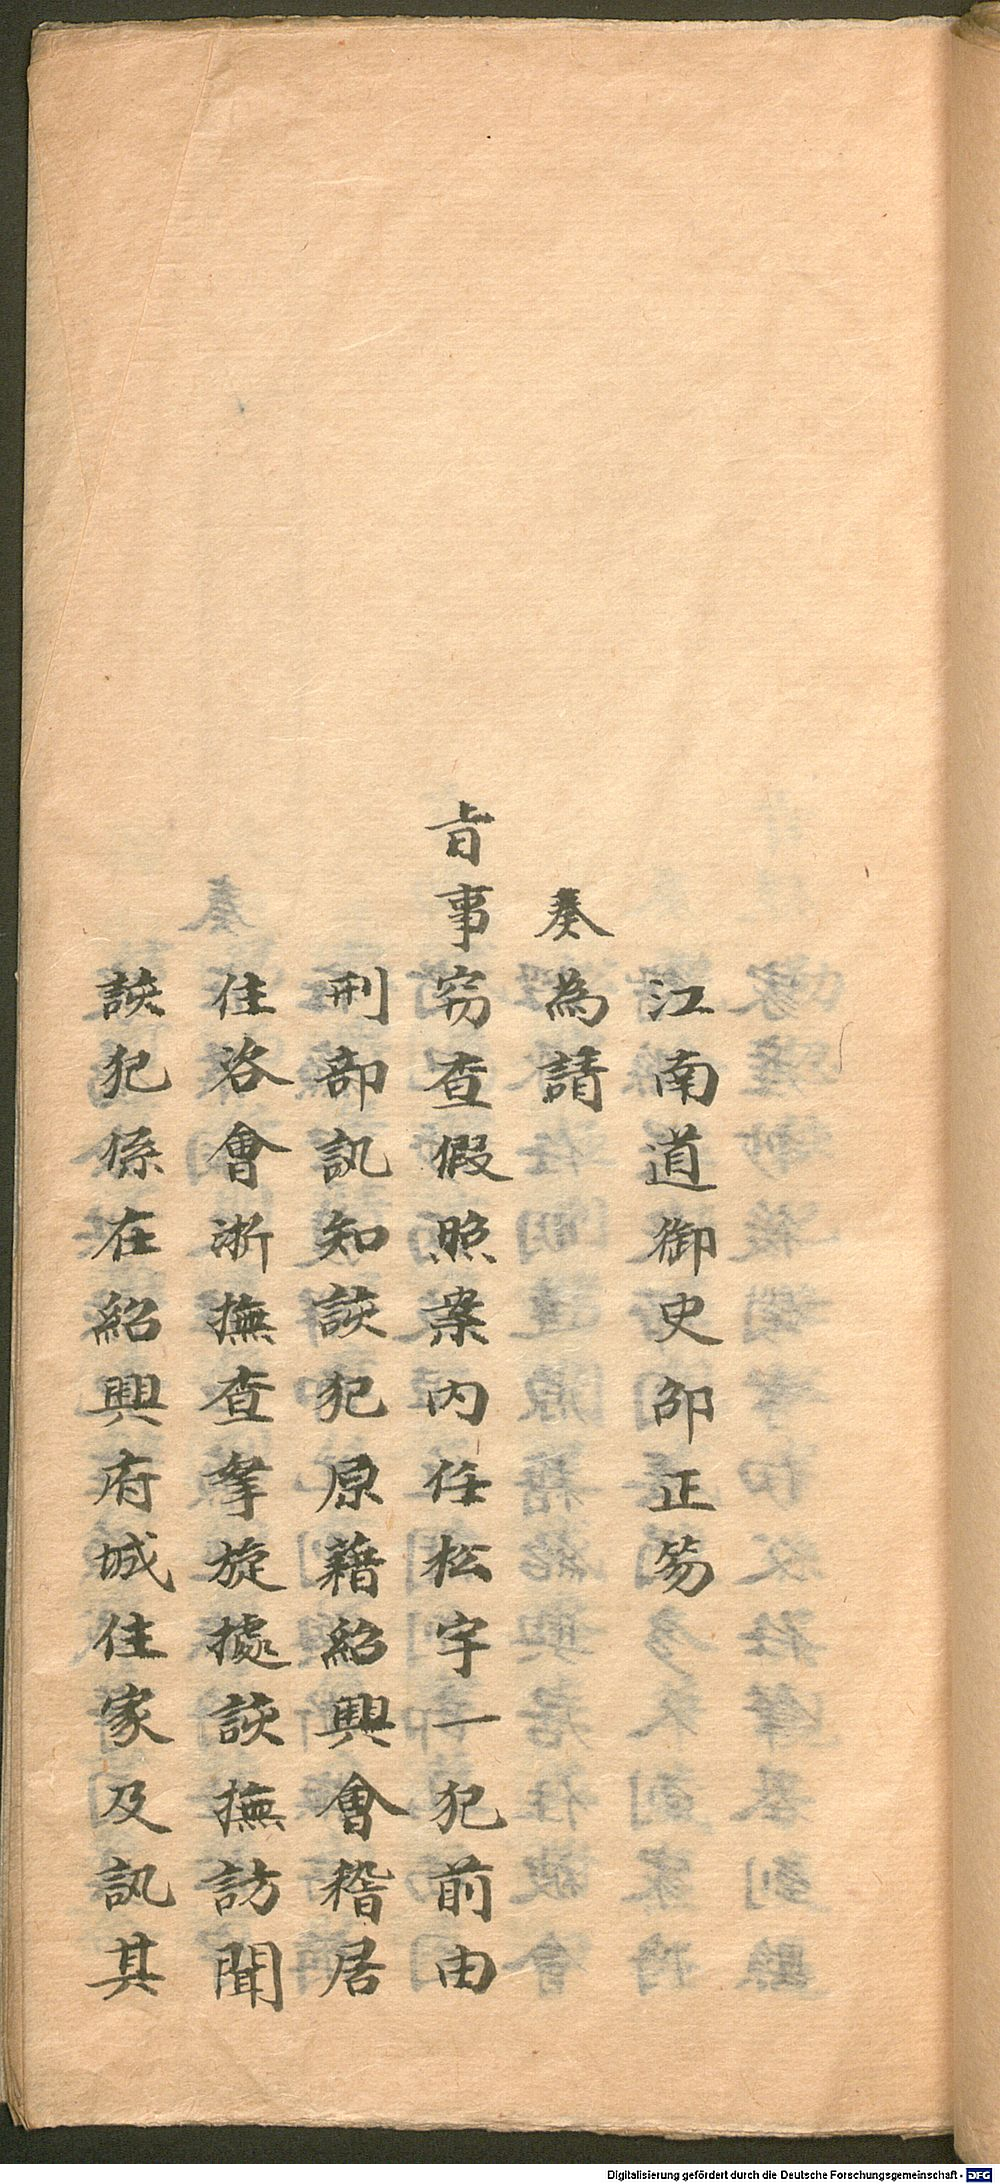 江南道御史邵正笏
奏為請
旨事窃查假照案内任松宇一犯前由
刑部訊知該犯原藉紹興會稽居
住咨會浙撫查拏旋據該撫訪聞
該犯係在紹興府城住家及訊其
Digitalisierung gefördert durch die Deutsche Forschungsgemeinschaft - DFG